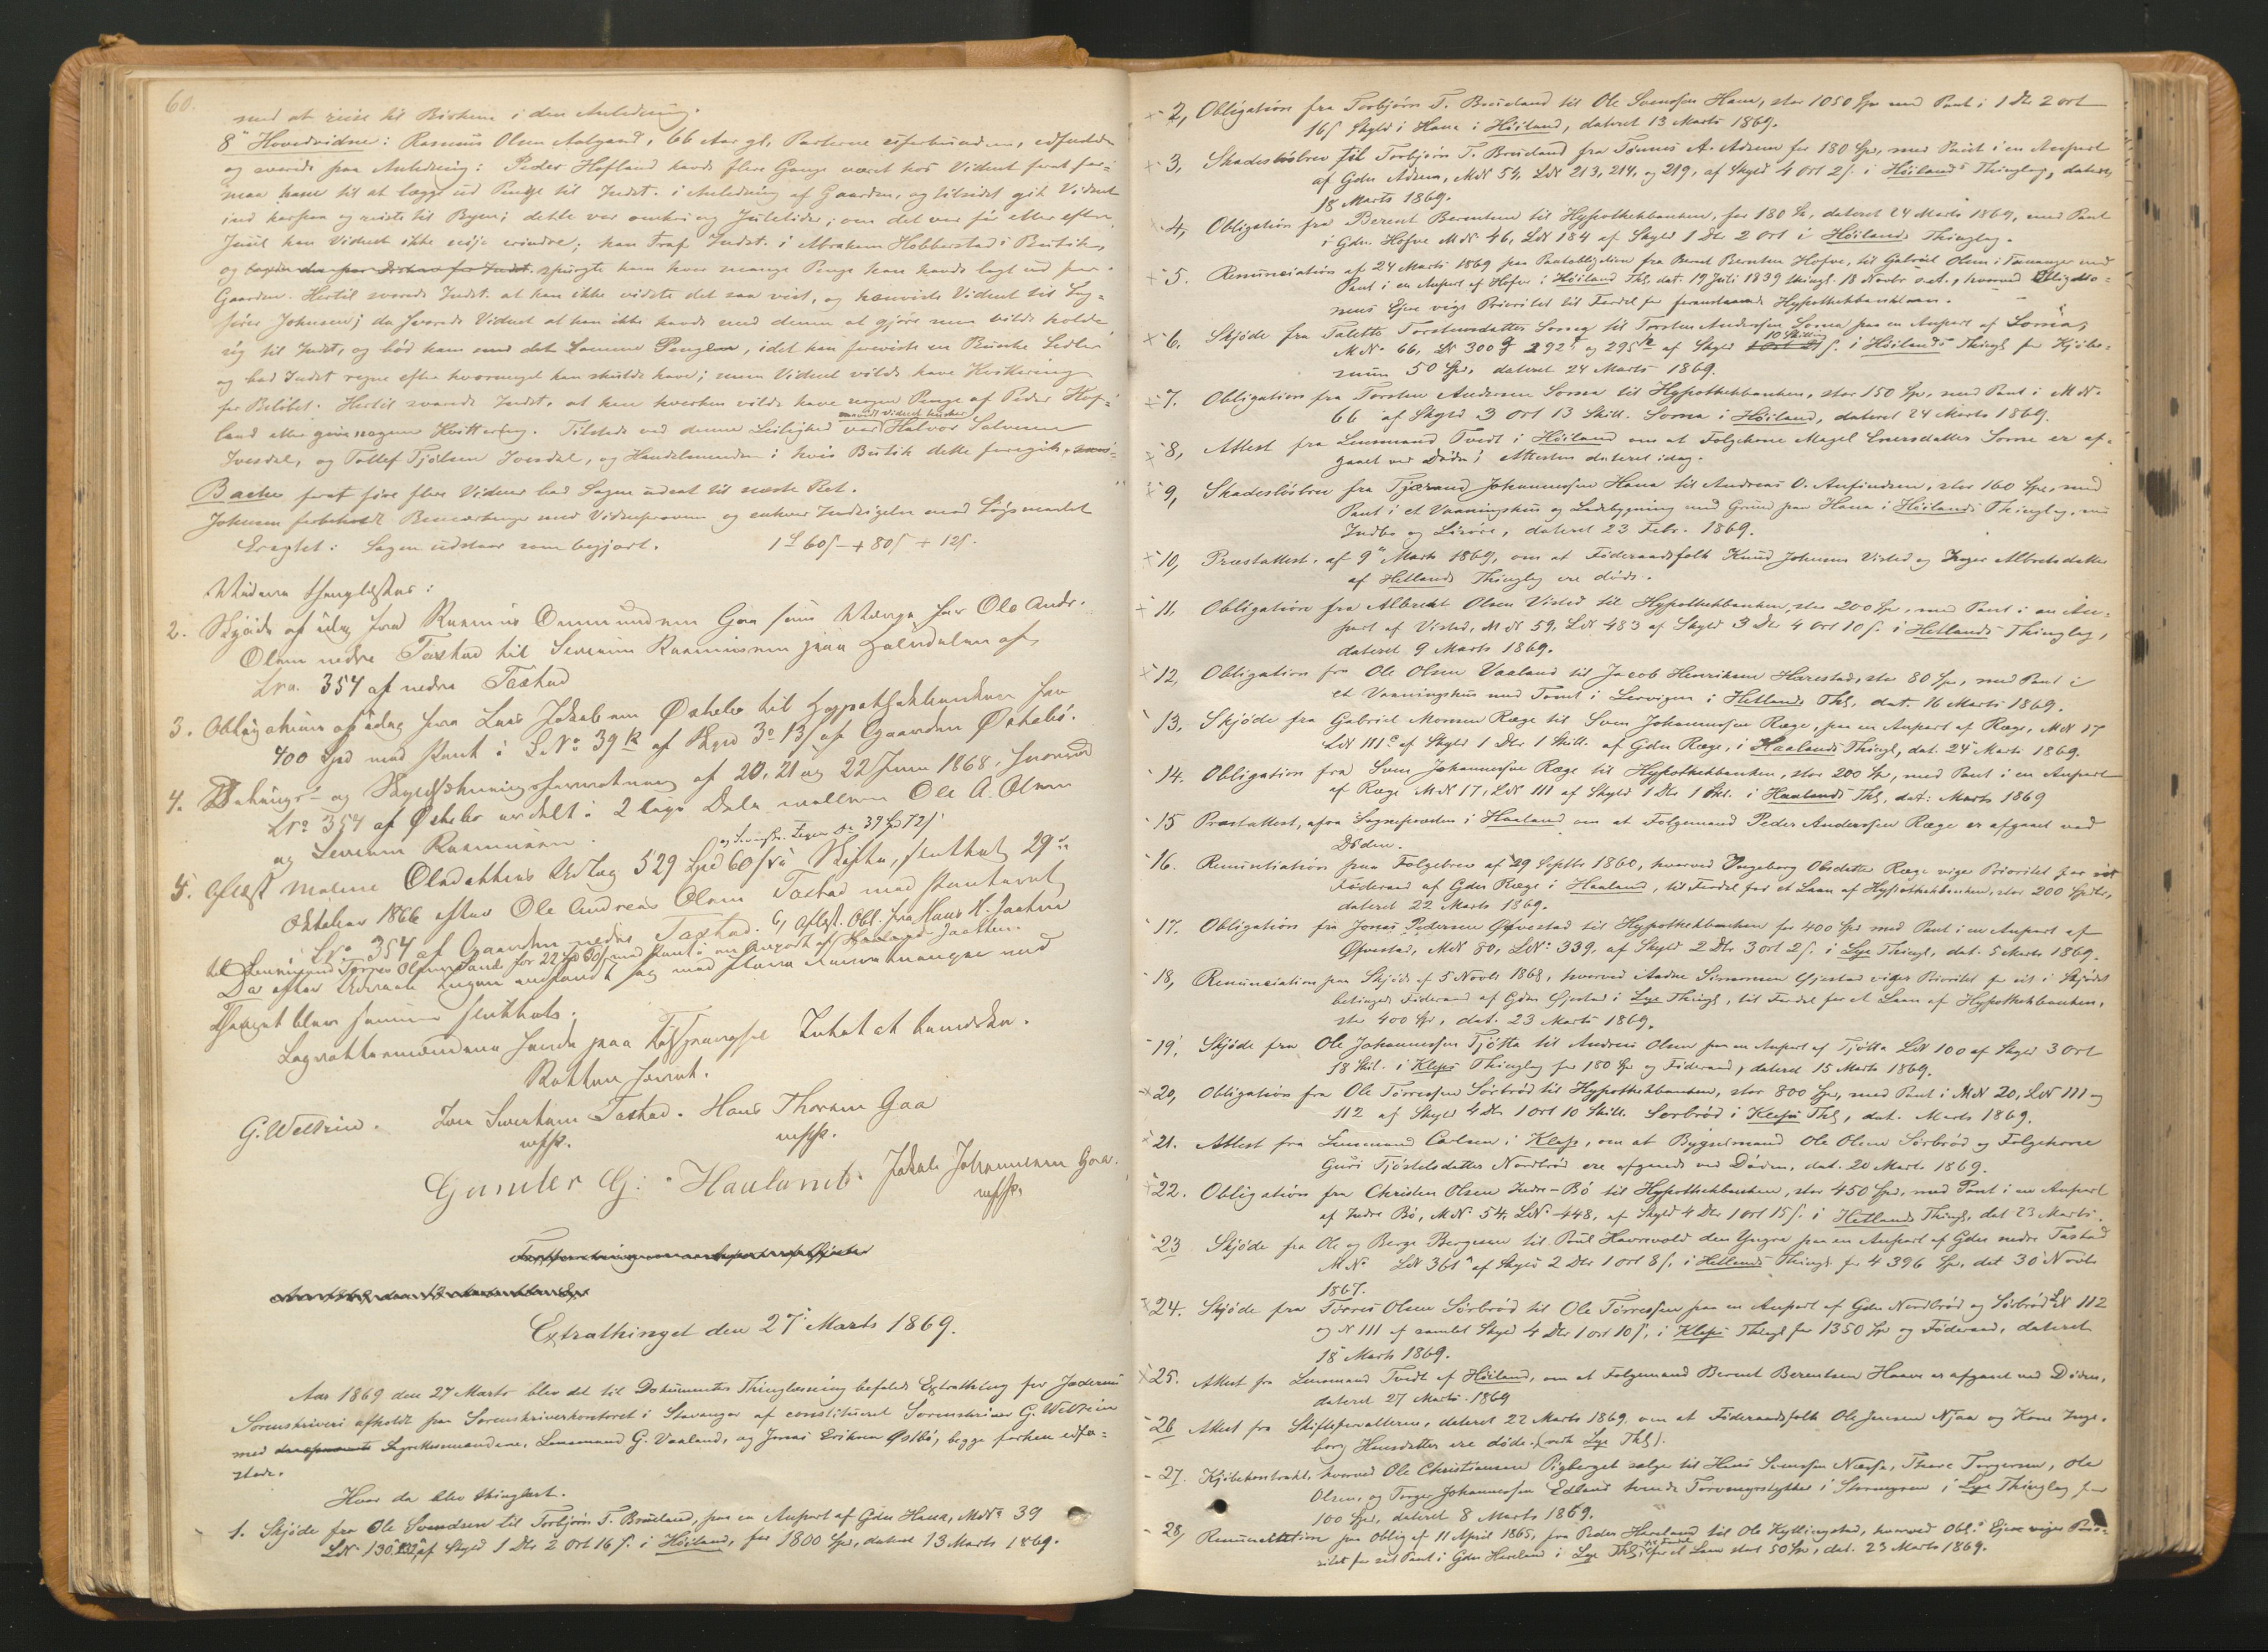 60.
med at reise til Birkene i den Anledning.
8de Hovedvidne: Rasmus Olsen Aalgaard, 66 Aar gl, Parterne uforbunden, edfæstedes
og svarede paa Anledning: Peder Hofland havde flere Gange været hos Vidnet forat for-
maa ham til at lægge ud Penge til Indst. i Anledning af Gaarden, og tilsidst gik Vidnet
ind herpaa og reiste til Byen; dette var omkring Juletider; om det var før eller efter
Juul kan Vidnet ikke nøje erindre; han traf Indst. i Abraham Hobberstads Butik,
og spurgte ham hvor mange Penge han havde lagt ud for
Gaarden. Hertil svarede Indst. at han ikke vidste det saa vist, og henviste Vidnet til Sag-
fører Johnsen; da svarede Vidnet at han ikke havde med denne at gjøre men vilde holde
sig til Indst, og bød ham med det samme Pengene, idet han foreviste en Bunke Sedler
og bad Indst regne efter hvormeget han skulde have; men Vidnet vilde have Kvittering
for Beløbet. Hertil svarede Indst. at han hverken vilde have nogen Penge af Peder Hof-
land eller give nogen Kvittering. Tilstede ved denne Leilighed var saavidt Vidnet husker Halvor Salvesen
Ivesdal, og Tollef Tjølsen Ivesdal, og Handelsmanden i hvis Butik dette foregik.
Bache forat føre flere Vidner bad Sagen udsat til næste Ret.
Johnsen forbeholdt Bemærkninger med Vidneprovene og enhver Indsigelse mod Søgsmaalet
Eragtet: Sagen udstaar som begjært. 1 60 + 80 + 12
Videre thinglæstes:
2. Skjøde af idag fra Rasmus Ommundsen Goa som Værge for Ole Andr.
Olsen nedre Tastad til Severin Rasmussen paa Halvdelen af
Lno. 354 af nedre Tastad
3. Obligation af idag fra Lars Jakobsen Østebø til Hypothekbanken for
400 Spd med Pant i L No 39 b af Skyld 3 o 13 s af Gaarden Østebø.
4. Delings- og Skyldsætningsforretning af 20, 21 og 22 Juni 1868, hvorved
Lno 354 af Østebø er delt i 2 lige Dele mellem Ole A. Olsen
og Severin Rasmussen.
5. Aflæst Malene Olsdatters Udlæg 529 Spd 60 s i Skiftet, sluttet 29de
Oktober 1866 efter Ole Andreas Olsen Tastad med Panteret
i Lno 354 af Gaarden nedre Tastad. 6, Aflæst. Obl. fra Hans H. Jaatten
til Lensmand Torres Olsen Sande for 22 Spd 60 s med Pant i en Anpart af Gaarden Jaatten.
Da efter Udraab Ingen indfandt sig med flere Forretninger ved
Thinget blev samme sluttet.
Lagrettemændene havde paa Tilspørgsel Intet at bemærke.
Retten hævet.
G. Weltzin. Iver Sivertsen Tastad. Hans Thorsen Gaa
m/p. m/p.
Gunder G: Hauland. Jakob Johannesen Goa.
m/p.
Extrathinget den 27de Marts 1869.
Aar 1869 den 27 Marts blev det til Dokumenters Thinglæsning befalede Extrathing for Jæderens
Sorenskriveri afholdt paa Sorenskriverkontoret i Stavanger af constitueret Sorenskriver G. Weltzin
med Lagrettesmændene, Lensmand G. Vaaland, og Jonas Eriksen Østbø, begge forhen edfæ-
stede.
Hvor da blev thinglæst.
1. Skjøde fra Ole Svendsen til Torbjørn T. Bruland, paa en Anpart af Gdn Hana, MNo 39
LNo 130 af Skyld 1 Dlr 2 Ort 16 s. i Høiland, for 1800 Spd, dateret 13 Marts 1869.
2, Obligation fra Torbjørn T. Bruland til Ole Svendsen Hana, stor 1050 Spd med Pant i 1 Dlr 2 ort
16 s Skyld i Hana i Høiland, dateret 13 Marts 1869.
3, Skadesløsbrev til Torbjørn T. Bruland fra Tønnes A. Adsen for 180 Spd, med Pant i en Anpart
af Gdn Adsen, MN 54, LN 213, 214, og 219, af Skyld 4 Ort 2 s. i Høilands Thinglag, dateret
18 Marts 1869.
4, Obligation fra Berent Berentsen til Hypothekbanken, for 180 Sp, dateret 24 Marts 1869, med Pant
i Gdn. Hofve MN 46, LN 184 af Skyld 1 Dlr 2 Ort i Høilands Thinglag.
5. Renunciation af 24 Marts 1869 paa Pantobligation fra Bernt Berntsen Hofve, til Gabriel Olsen i Tananger med
Pant i en Anpart af Hofve i Høiland Thl, dat. 19 Juli 1839 thingl. 18 Novbr s.A., hvorved Obligatio-
nens Ejer vige Prioritet til Fordel for foranstaaende Hypothekbanklaan.
6. Skjøde fra Taletta Torstensdatter Soma til Torsten Andersen Soma paa en Anpart af Soma,
MNo 66, LN 300 g 292 f og 295 b af Skyld 10 Skilling i Høilands Thingl for Kjøbe-
sum 50 Spd, dateret 24 Marts 1869.
7. Obligation fra Torsten Andersen Soma til Hypothekbanken, stor 150 Spd, med Pant i MN.
66 af Skyld 3 Ort 13 Skill. Soma i Høiland, dateret 24 Marts 1869.
8, Attest fra Lensmand Tvedt i Høiland om at Folgekone Magel Enersdatter Soma er af-
gaaet ved Døden; Attesten dateret idag.
9, Skadesløsbrev fra Tjerand Johannesen Hana til Andreas O. Anfindsen, stor 160 Spd, med
Pant i et Vaaningshus og Ladebygning med Grund paa Hana i Høilands Thinglag, med
Indbo og Løsøre, dateret 23 Febr. 1869.
10, Præstattest, af 9de Marts 1869, om at Føderaadsfolk Knud Johnsen Visted og Inger Albretsdatter
af Hetlands Thinglag ere døde.
11, Obligation fra Albrecht Olsen Visted til Hypothekbanken, stor 200 Spd, med Pant i en An-
part af Visted, MN 59, LN 483 af Skyld 3 Dlr 4 Ort 10 s. i Hetlands Thinglag,
dateret 9 Marts 1869.
12, Obligation fra Ole Olsen Vaaland til Jacob Henriksen Harestad, stor 80 Spd, med Pant i
et Vaaningshus med Tomt i Lervigen i Hetlands Thl, dat. 16 Marts 1869.
13. Skjøde fra Gabriel Monsen Ræge til Sven Johannesen Ræge, paa en Anpart af Ræge, MN 17
LN 111 c af Skyld 1 Dlr 1 Skill. af Gdn Ræge, i Haalands Thingl, dat. 24 Marts 1869.
14. Obligation fra Sven Johannesen Ræge til Hypothekbanken, stor 200 Spd, med Pant i en Anpart
af Ræge MN 17, LN 111 af Skyld 1 Dlr 1 Skl. i Haalands Thl, dat: Marts 1869
15 Præstattest, fra Sognepræsten i Haaland om at Folgemand Peder Andersen Ræge er afgaaet ved
Døden.
16. Renuntiation paa Folgebrev af 29 Septbr 1860, hvorved Ingeborg Olsdatter Ræge viger Prioritet for sit
Føderaad af Gdn Ræge i Haaland, til Fordel for et Laan af Hypothekbanken, stor 200 Spdlr,
dateret 22 Marts 1869.
17. Obligation fra Jonas Pedersen Øfvestad til Hypothekbanken for 400 Spd med Pant i en Anpart af
Øfvestad, MN 80, LNo: 339, af Skyld 2 Dlr 3 Ort 2 s. i Lye Thingl, dat. 5 Marts 1869.
18, Renunciation paa Skjøde af 5 Novbr 1868, hvorved Andreas Simonsen Gjestad viger Prioritet for sit i Skjødet
betingede Føderaad af Gdn Gjestad i Lye Thingl, til Fordel for et Laan af Hypothekbanken,
stor 400 Spd, dat. 23 Marts 1869.
19, Skjøde fra Ole Johannesen Tjøtta til Andreas Olsen paa en Anpart af Tjøtta LN 100 af Skyld 3 Ort
18 Skil. i Klepp Thinglag for 180 Spd og Føderaad, dateret 15 Marts 1869.
20, Obligation fra Ole Torresen Sørbrød til Hypothekbanken, stor 800 Spd, med Pant i MN 20, LN 111 og
112 af Skyld 4 Dlr 1 Ort 10 Skill. Sørbrød i Klepp Thl, dat. Marts 1869.
21. Attest fra Lensmand Carlsen i Klepp, om at Bygselmand Ole Olsen Sørbrød og Folgekone
Guri Tjøstelsdatter Nordbrød ere afgaaede ved Døden, dat. 20 Marts 1869.
22. Obligation fra Christen Olsen Indre-Bø til Hypothekbanken, stor 450 Spd, med Pant i en Anpart
af Indre Bø, MNo 54, LNo 448, af Skyld 4 Dlr 1 Ort 15 s. i Hetlands Thingl, dat 23 Marts.
23 Skjøde fra Ole og Berge Bergesen til Poul Haversvold den Yngre paa en Anpart af Gdn nedre Tastad
MNo LN 361 a af Skyld 2 Dlr 1 Ort 8 s, i Hetlands Thingl. for 4396 Spd, dat 30 Novbr
1867.
24. Skjøde fra Torres Olsen Sørbrød til Ole Torresen paa en Anpart af Gdn Nordbrød og Sørbrød LN 112
og N 111 af samlet Skyld 4 Dlr 1 Ort 10 s, i Klepp Thingl for 1350 Spd og Føderaad, dateret
18 Marts 1869.
25. Attest fra Lensmand Tvedt af Høiland, om at Folgemand Berent Berentsen Haave er afgaaet ved Døden,
dateret 27 Marts 1869
26 Attest fra Skifteforvalteren, dateret 22 Marts 1869, om at Føderaadsfolk Ole Jensen Njaa og Kone Inge-
borg Hansdatter ere døde. (vedk Lye Thl).
27. Kjøbekontrakt, hvorved Ole Christiansen Rigberget sælge til Hans Svensen Næse, Thore Torgersen, Ole
Olsen, og Torger Johannesen Edland tvende Torvemyrstykker i Stormyren i Lye Thinglag for
100 Spd, dateret 8 Marts 1869.
28, Renunciation paa Oblig af 11 April 1865, fra Peder Haveland til Ole Kyllingstad, hvorved Obl.s Ejer viger Prio-
ritet for sit Pant i Gdn Haveland i Lye Thl, til Fordel for et Laan stort 50 Spd, dat. 23 Marts 1869.